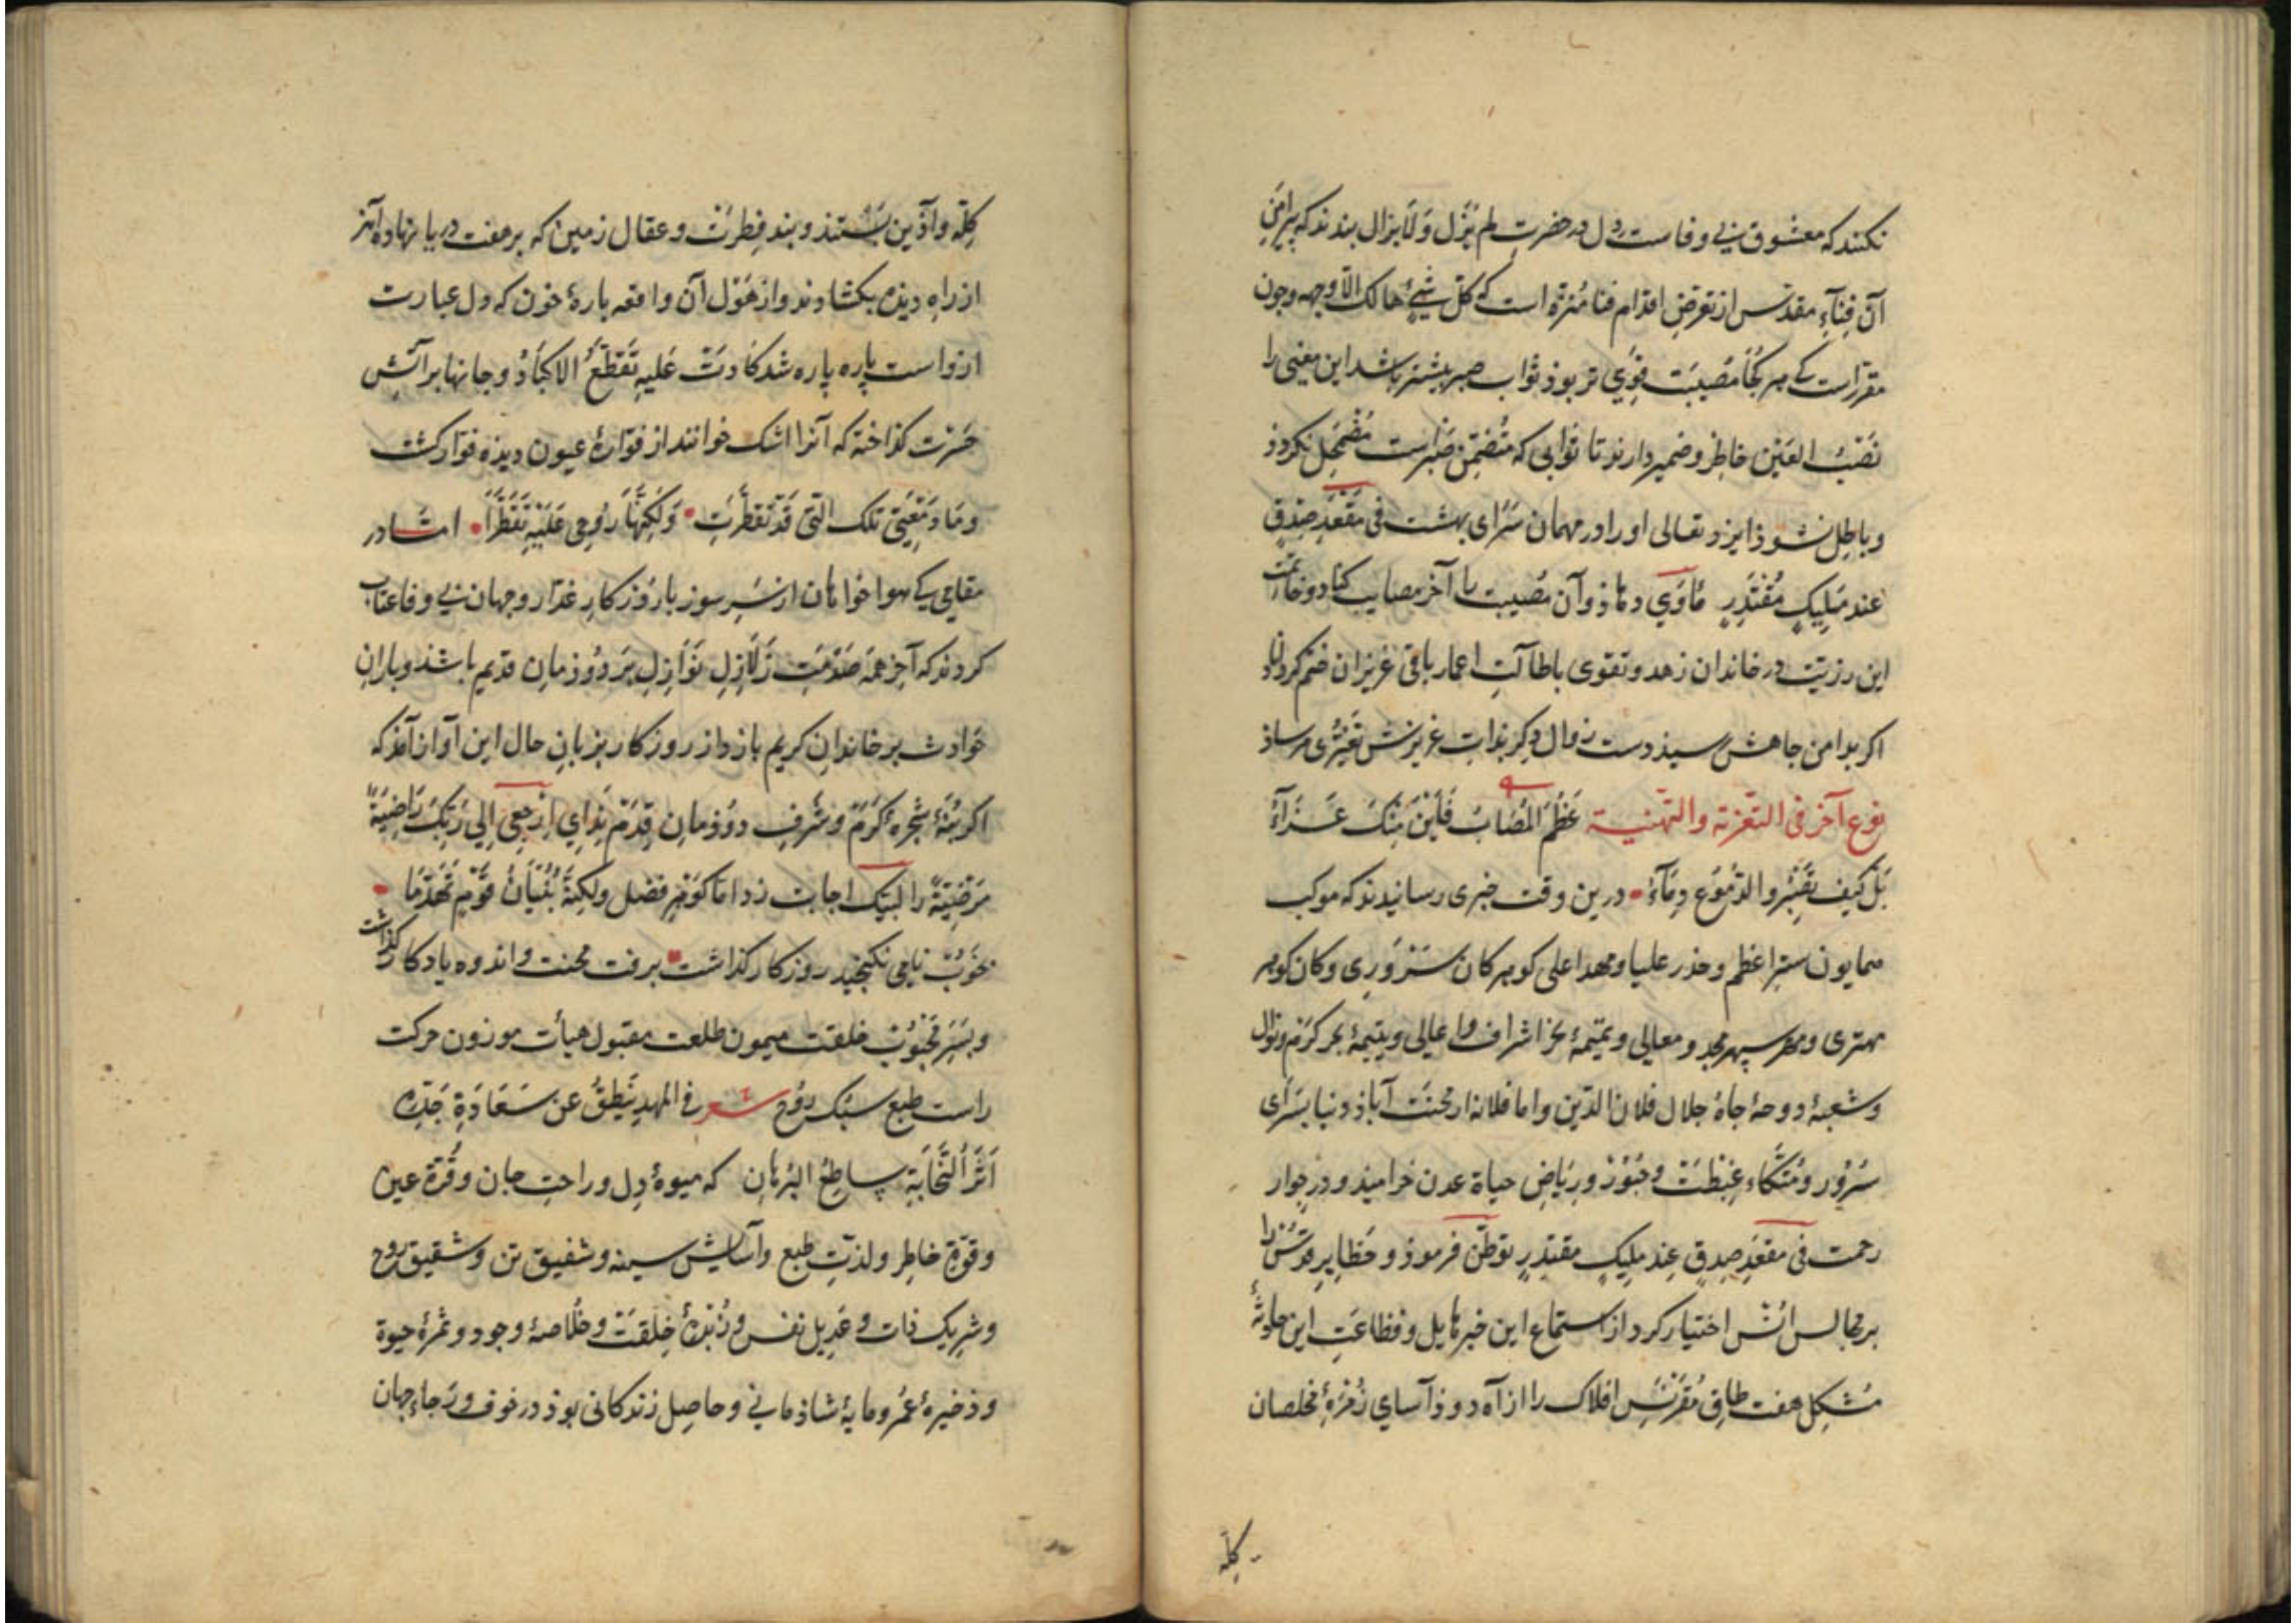 نکنند که معشوق بی وفاست دل در حضرت لم یزل ولا یزال بندند که پیرامن
آن فناء مقدس از تعرض اقدام فنا منزه است که کل شیء هالک الا وجهه وچون
مقررست که هر کجا مصیبت قوی تر بوذ ثواب صبر بیشتر باشد این معنی را
نصب العین خاطر وضمیر دارند تا ثوابی که متضمن صبرست مضمحل نکردذ
وباطل نشوذ ایزد تعالی او را در مهمان سرای بهشت فی مقعد صدق
عند ملیک مقتدر مأوی دهاذ وآن مصیبت را آخر مصایب کناد وخاتمت
این رزیت در خاندان زهد وتقوی باطالت اعمار باقی عزیزان ختم کرداناد
اکر بدامن جاهش رسیذ دست زوال دکر بذات عزیزش تغیری مرساذ
نوع آخر فی التعزیة والتهنیة عظم المصاب فاین منک عزاء
بل کیف یفتر والدموع دماء درین وقت خبری رسانیدند که موکب
همایون ستر اعظم وخدر علیا ومهد اعلی کوهر کان سروری وکان کوهر
مهتری ومهر سپهر مجد ومعالی وتمیمهٔ نحر اشراف واعالی ویتیمهٔ بحر کرم ونوال
وشعبهٔ دوحهٔ جاه جلال فلان الدین واما فلانه از محنت آباذ دنیا بسرای
سرور ومتکاء غبطت وحبور وریاض حیاة عدن خرامیذ ودر جوار
رحمت فی مقعد صدق عند ملیک مقتدر توطن فرموذ وحظایر قدس را
بر مجالس انس اختیار کرد از استماع این خبر هایل وفظاعت این حادثهٔ
مشکل هفت طاق مقرنس افلاک را از آه دوذ آسای زمرهٔ مخلصان
کله
کله وآذین بستند وبند فطرت وعقال زمین که بر هفت دریا نهاده اند
از راه دیذه بکشاذند واز هول آن واقعه پارهٔ خون که دل عبارت
ازواست پاره پاره شد کادت علیه تقطع الاکباد وجانها بر آتش
حسرت کذاخته که آنرا اشک خوانند از فوارهٔ عیون دیذه فوار کشت
وما دمعتی تلک التی قد تقطرت ولکنها روحی علیه تقطرا امشا در
مقامی که هواخواهان از سر سوز با روزکار غدار وجهان بی وفا عتاب
کردند که آخر همه صدمت زلازل نوازل بر دوذمان قدیم باشذ وباران
حوادث بر خاندان کریم بازد از روزکار بزبان حال این آواز آمذ که
اکر بنهٔ شجرهٔ کرم وشرف دوذمان قدم ندای ارجعی الی ربک راضیة
مرضیة را لبیک اجابت زد اما کوهر فضل ولکنه بنیان قوم تهدما
خوب نامی نکنجید روزکار کذاشت برفت محنت واندوه یادکار کذاشت
وبسر محبوب خلقت میمون طلعت مقبول هیأت موزون حرکت
راست طبع سبک روح شعر فی المهد ینطق عن سعادة جده
اثر النجابة ساطع البرهان که میوهٔ دل وراحت جان وقرة عین
وقوة خاطر ولذت طبع وآسایش سینه وشفیق تن وشقیق روح
وشریک ذات وعدیل نفس وزبدهٔ خلقت وخلاصهٔ وجود وثمرهٔ حیوة
وذخیرهٔ عمر ومایهٔ شاذمانی وحاصل زندکانی بوذ در خوف ورجاء جهان